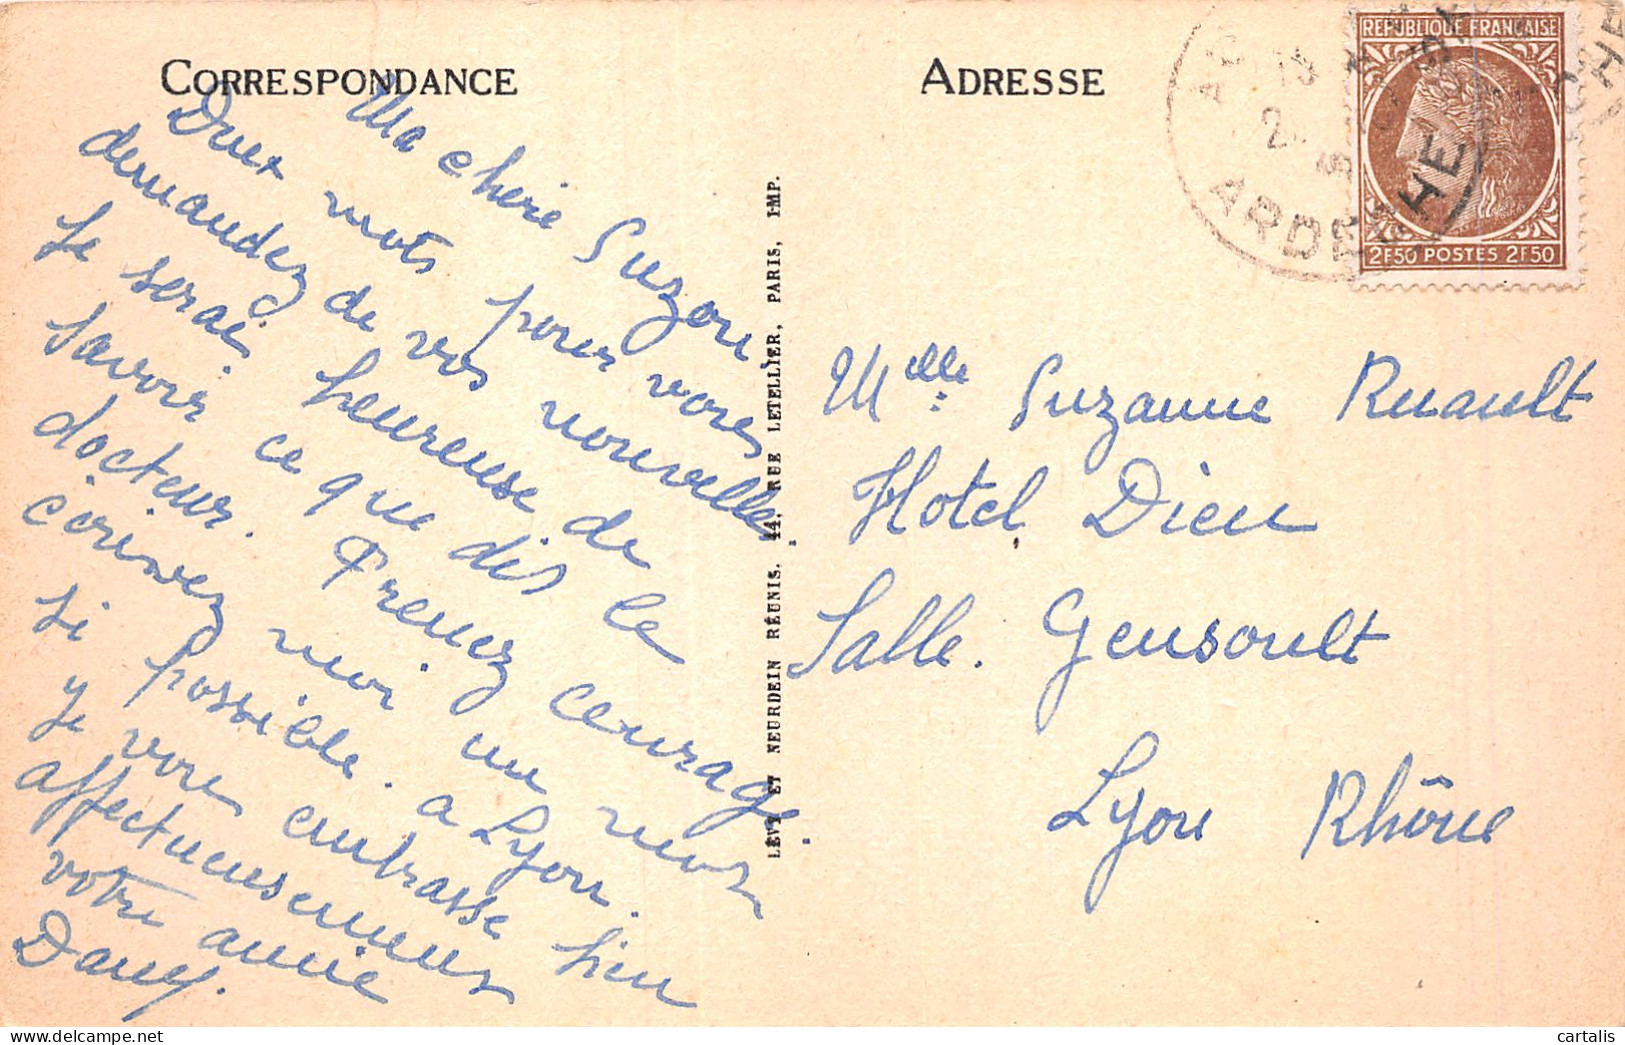 CORRESPONDANCE
Ma chère Suzon.
Deux mots pour vous
demandez de vos nouvelles.
Je serai heureuse de
savoir ce que dis le
docteur. Prenez courage.
écrivez moi un mot
si possible. a Lyon.
Je vous embrasse bien
affectueusement
votre amie
Dany.
LÉVY ET NEURDEIN RÉUNIS. 44, RUE LETELLIER, PARIS, IMP.
ADRESSE
REPUBLIQUE FRANÇAISE
2F50 POSTES 2F50
ARDECHE
Melle Suzanne Ruault
Hotel Dieu
Salle. Gensoult
Lyon Rhône
cartalis